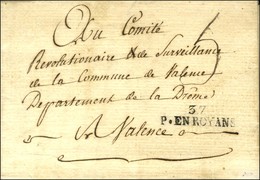 Au Comité
Revolutionaire & de Surveillance
de la Commune de Valence
Departement de la Drôme
37
P. EN ROYANS
A Valence